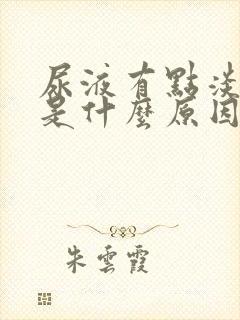 尿液有點淡
是什麼原因
朱雲霞